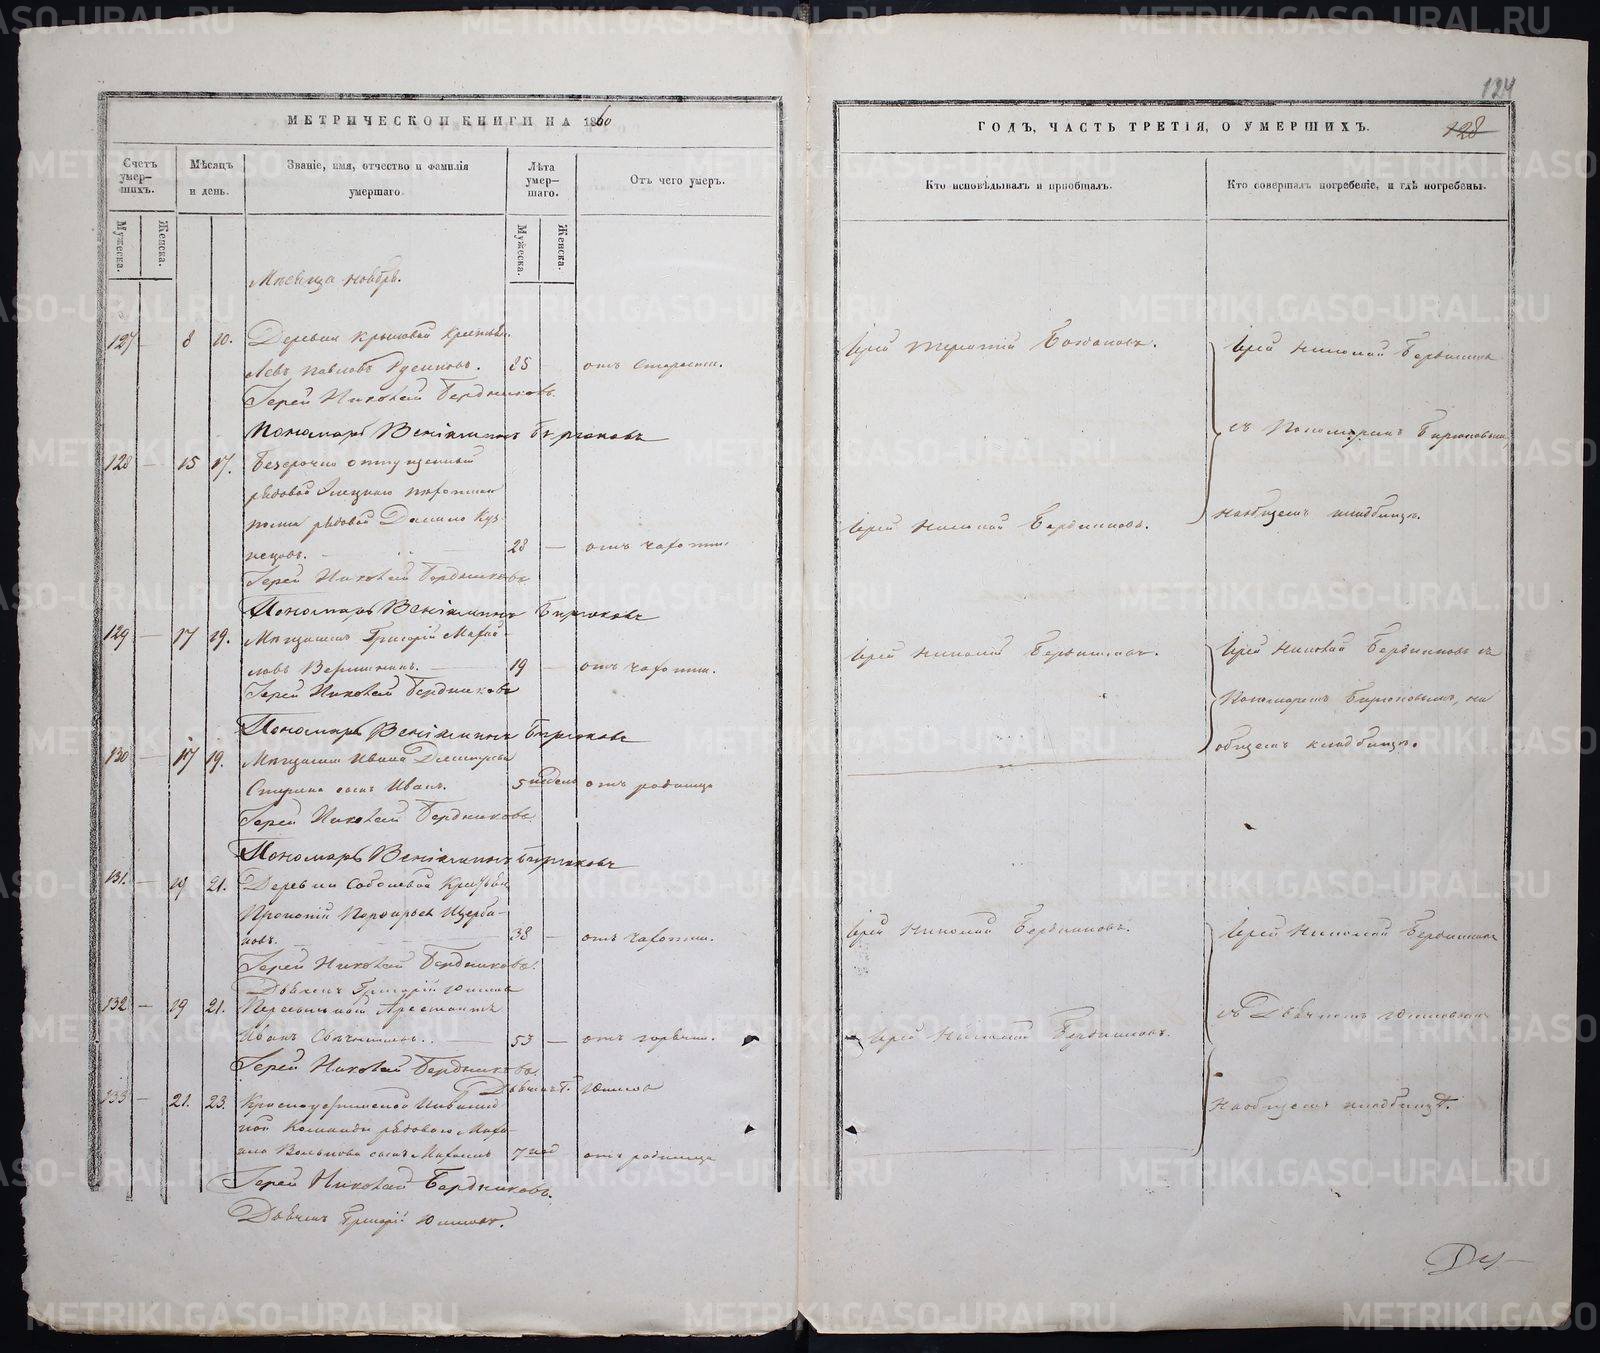 МЕТРИЧЕСКОЙ КНИГИ НА 1860
Счетъ умер-шихъ.
Мѣсяцъ и день.
Званіе, имя, отчество и фамилія умершаго.
Лѣта умер-шаго.
Отъ чего умеръ.
Мужеска.
Женска.
Мужеска.
Женска.
Мѣсяца ноября.
127 — 8 10. Деревни Крыловой крестьян.
Левъ Павловъ Русиновъ. 85 — отъ старости.
Іерей Николай Бердниковъ
Пономарь Веніаминъ Бирюковъ
128 — 15 17. Безсрочно отпущенный
рядовой
рядовой Данило Куз-
нецовъ. 28 — отъ чахотки.
Іерей Николай Бердниковъ
Пономарь Веніаминъ Бирюковъ
129 — 17 19. Мѣщанинъ Григорій Михай-
ловъ 19 — отъ чахотки.
Іерей Николай Бердниковъ
Пономарь Веніаминъ Бирюковъ
130 — 17 19. Мѣщанина Ивана Дмитріева
сынъ Иванъ. 5 недель отъ родимца
Іерей Николай Бердниковъ
Пономарь Веніаминъ Бирюковъ
131. — 19 21. Деревни Соболевой Крестьян.
Прокопій Порфирьевъ Щерба-
ковъ. 38 — отъ чахотки.
Іерей Николай Бердниковъ.
Дьячекъ Григорій
132 — 19 21. Пересыльный Арестантъ
Иванъ 53 — отъ горячки.
Іерей Николай Бердниковъ.
Дьячекъ Г.
133 — 21. 23. Красноуфимской Инвалид-
ной Команды рядоваго Миха-
ила сынъ Михаилъ 7 нед отъ родимца
Іерей Николай Бердниковъ.
Дьячекъ Григорій
124
ГОДЪ, ЧАСТЬ ТРЕТІЯ, О УМЕРШИХЪ.
128
Кто исповѣдывалъ и пріобщалъ.
Кто совершалъ погребеніе, и гдѣ погребены.
Іерей Терентій Богдановъ.
Іерей Николай Бердниковъ
съ Пономаремъ Бирюковымъ
Іерей Николай Бердниковъ.
на общемъ кладбищѣ.
Іерей Николай Бердниковъ.
Іерей Николай Бердниковъ съ
Пономаремъ Бирюковымъ, на
общемъ кладбищѣ.
Іерей Николай Бердниковъ.
Іерей Николай Бердниковъ
съ Дьячкомъ
Іерей Николай Бердниковъ.
на общемъ кладбищѣ.
METRIKI.GASO-URAL.RU